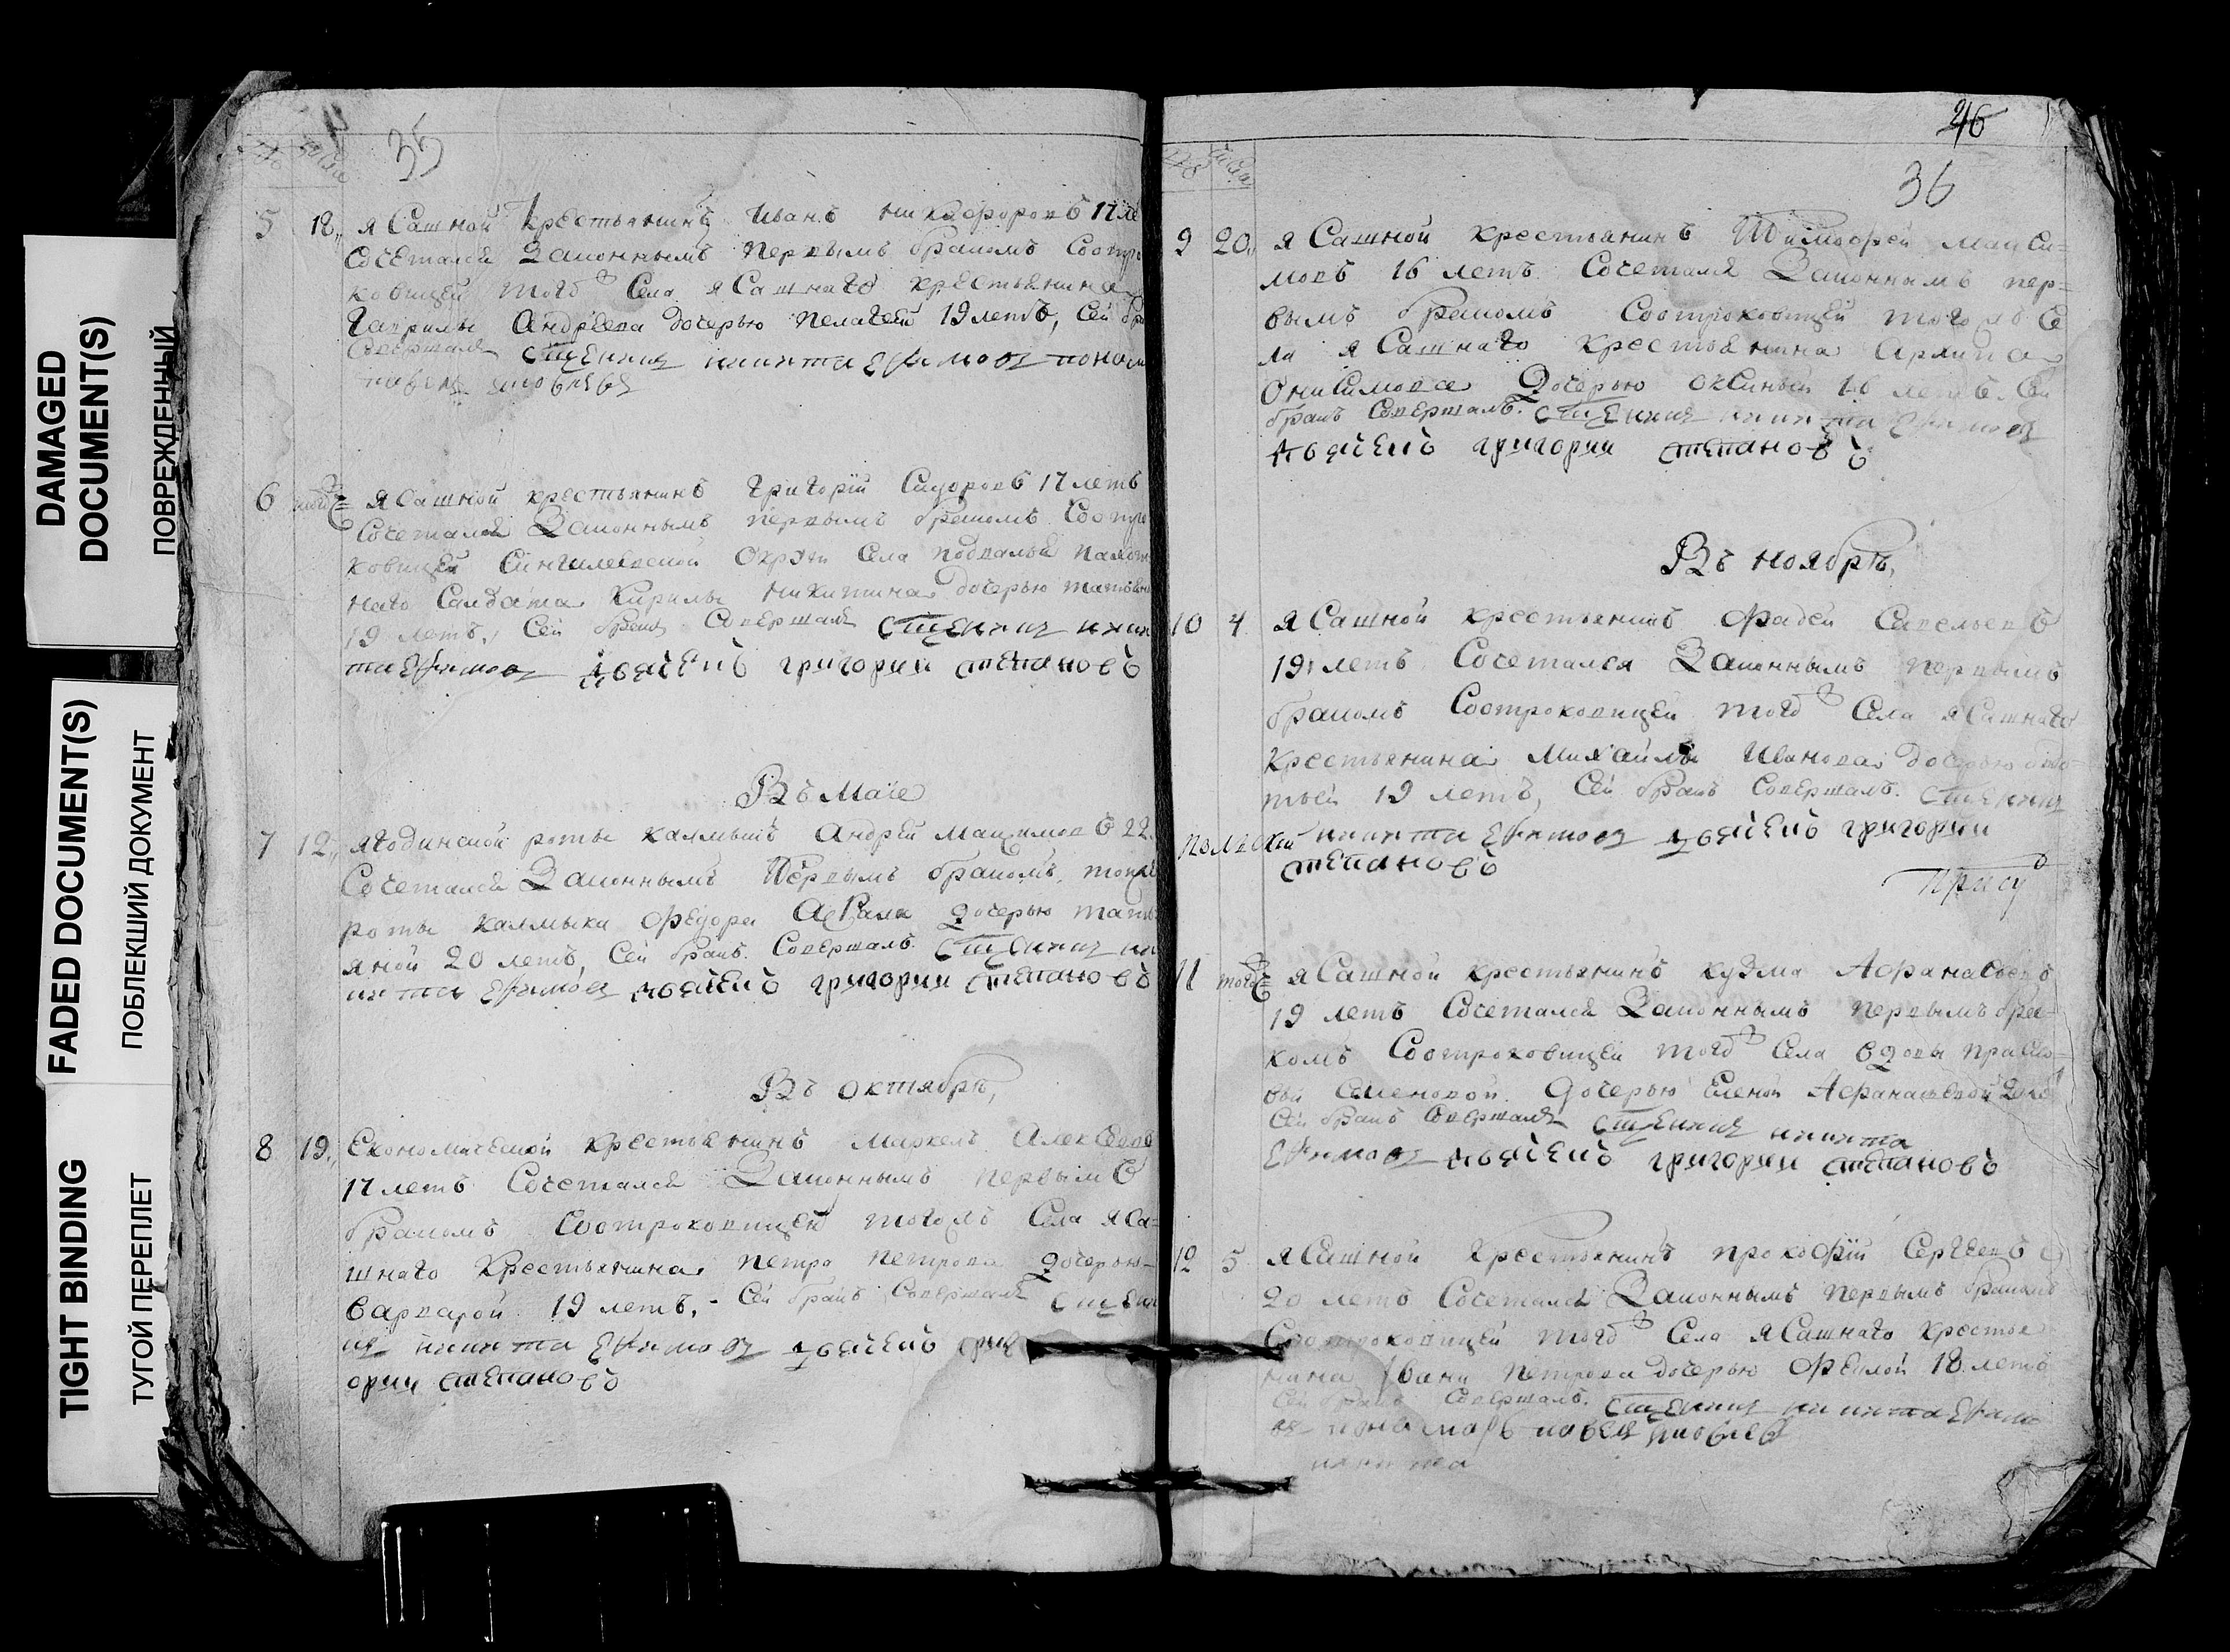 DAMAGED
DOCUMENT(S)
ПОВРЕЖДЕННЫЙ
FADED DOCUMENT(S)
ПОБЛЕКШИЙ ДОКУМЕНТ
TIGHT BINDING
ТУГОЙ ПЕРЕПЛЕТ
35
5 18 ясашной крестьянинъ Иванъ Никифоровъ 17 ле
сочетался законнымъ первымъ бракомъ соотро
ковицей того села ясашнаго крестьянина
Гаврилы Андреева дочерью Пелагеей 19 летъ, сей бра
совершали сщенникъ никита ефимовъ поном
павелъ
6 ясашной крестьянинъ Григорій Сидоровъ 17 летъ
сочетался законнымъ первымъ бракомъ соотро
ковицей Сингилеевской округи села подвалья
наго салдата Кирилы Никитина дочерью татьян
19 летъ, сей бракъ совершали сщенникъ ники
та ефимовъ григории степановъ
Въ Маіе
7 12 ягодинской роты калмыкъ Андрей Максимовъ 22
сочетался законнымъ первымъ бракомъ, тоя
роты калмыка Федора дочерью тать
яной 20 летъ, сей бракъ совершалъ сщенникъ ни
кита ефимовъ григории степановъ
Въ октябрѣ,
8 19 Економической крестьянинъ Маркелъ Алексеевъ
17 летъ сочетался законнымъ первымъ
бракомъ соотроковицей тогожъ села яса=
шнаго крестьянина Петра Петрова дочерью
варварой 19 летъ, сей бракъ совершали сщенн
икъ никита ефимовъ григ
ории степановъ
36
9 20 ясашной крестьянинъ Тимофей Макси=
мовъ 16 летъ сочетался законнымъ пер=
вымъ бракомъ соотроковицей тогожъ се
ла ясашнаго крестьянина Архипа
Онисимова дочерью оксиньей летъ сей
бракъ совершалъ сщенникъ никита ефимовъ
григории степановъ
Въ ноябрѣ,
10 4 ясашной крестьянинъ Фадей Савельевъ
19 летъ сочетался законнымъ первымъ
бракомъ соотроковицей того села ясашнаго
крестьянина Михайлы Иванова дочерью
19 летъ, сей бракъ совершалъ сщенникъ
никита ефимовъ григории
степановъ
11 ясашной крестьянинъ кузма Афанасьевъ
19 летъ сочетался законнымъ первымъ бра=
комъ соотроковицей того села вдовы праско=
вьи семеновой дочерью еленой Афанасьевой
сей бракъ совершали сщенникъ никита
ефимовъ григории степановъ
12 5 ясашной крестьянинъ прокофій Сергеевъ
20 летъ сочетался законнымъ первымъ бракомъ
соотроковицей того села ясашнаго крестья
нина Ивана Петрова дочерью Феклой 18 летъ
сей бракъ совершалъ сщенникъ никита ефимо
въ понамарь павелъ
никита